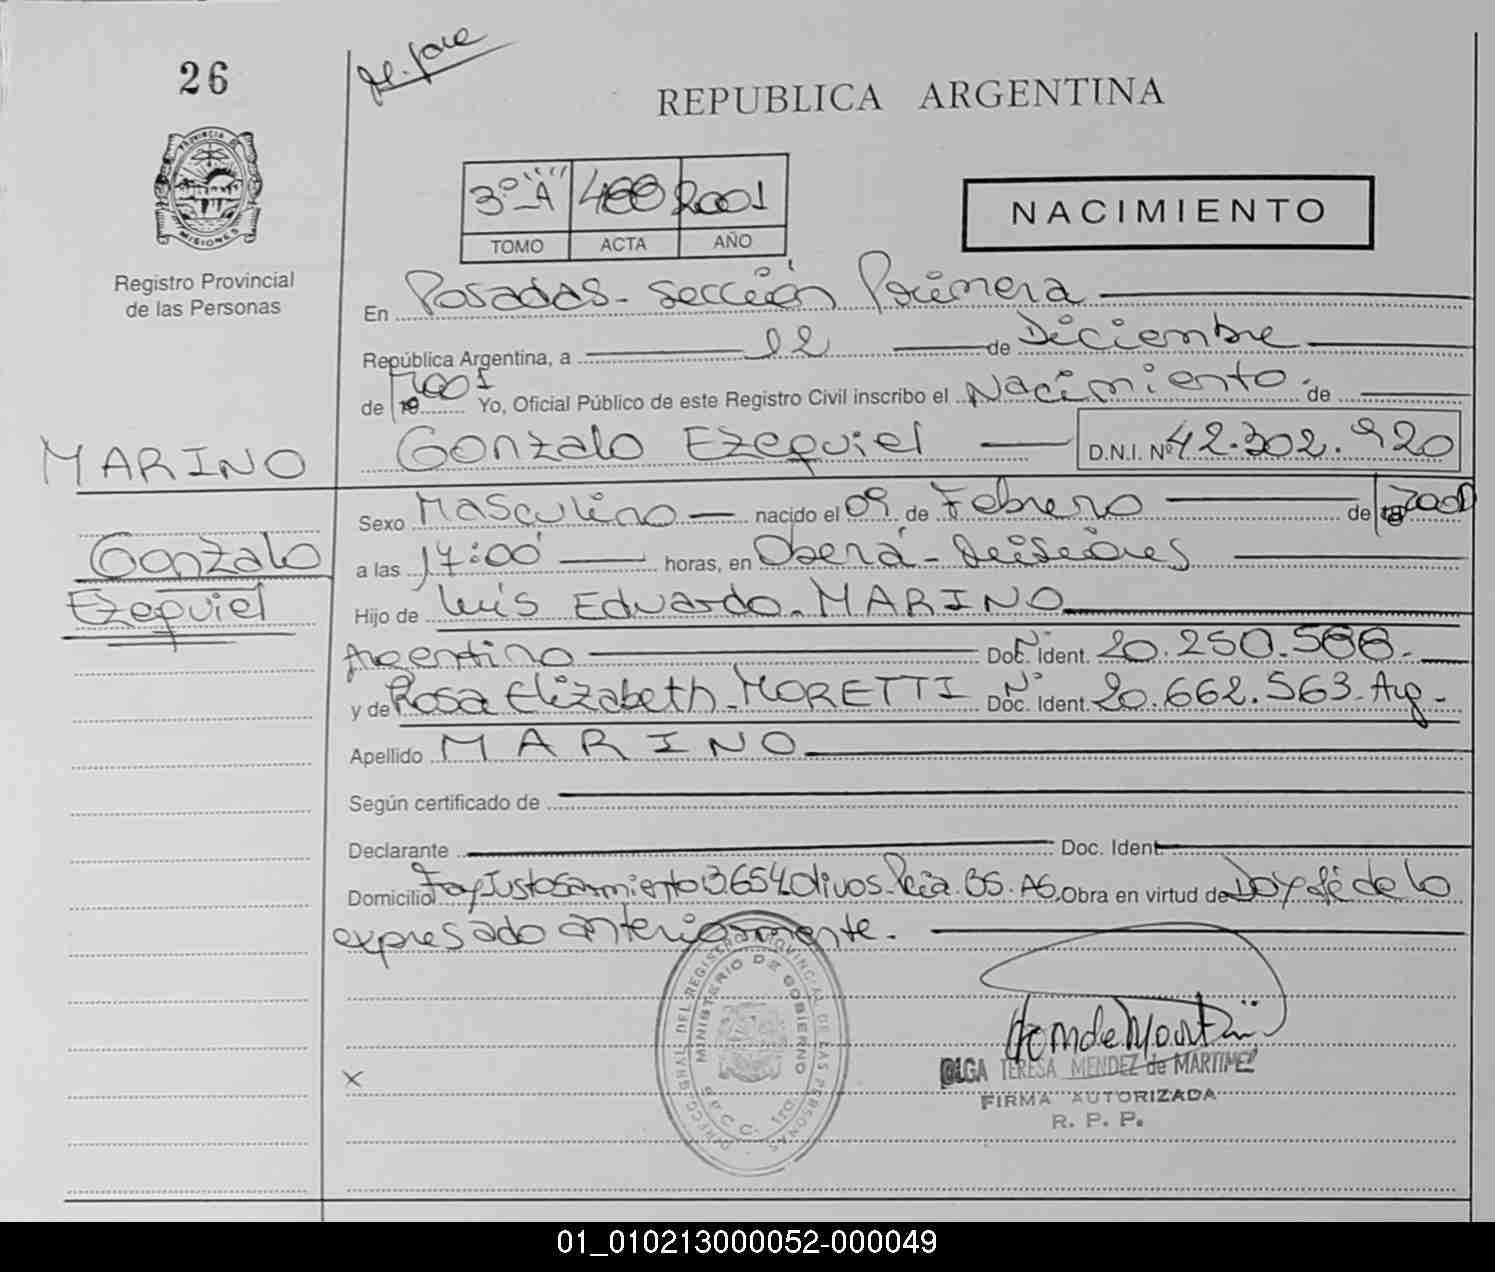 26
REPUBLICA ARGENTINA
PROVINCIA DE
MISIONES
Registro Provincial
de las Personas
3º "A" 488 2001
TOMO ACTA AÑO
NACIMIENTO
En Posadas - Sección Primera
República Argentina, a 12 de Diciembre
de 2001 Yo, Oficial Público de este Registro Civil inscribo el Nacimiento de
Gonzalo Ezequiel D.N.I. Nº 42.302.920
MARINO
Gonzalo
Ezequiel
Sexo Masculino nacido el 09 de Febrero de
a las 17:00 horas, en Oberá - Misiones
Hijo de Luis Eduardo MARINO
Argentino Doc. Ident. Nº 20.250.588.
y de Rosa Elizabeth MORETTI Doc. Ident. Nº 20.662.563 - Arg -
Apellido MARINO
Según certificado de
Declarante Doc. Ident.
Domicilio Fray Justo Sarmiento 3654 Olivos Pcia. BS. AS. Obra en virtud de Doy fé de lo
expresado anteriormente.
DIRECC. GRAL. DEL REGISTRO PROVINCIAL DE LAS PERSONAS
MINISTERIO DE GOBIERNO
OLGA TERESA MENDEZ de MARTINEZ
FIRMA AUTORIZADA
R. P. P.
X
01_010213000052-000049